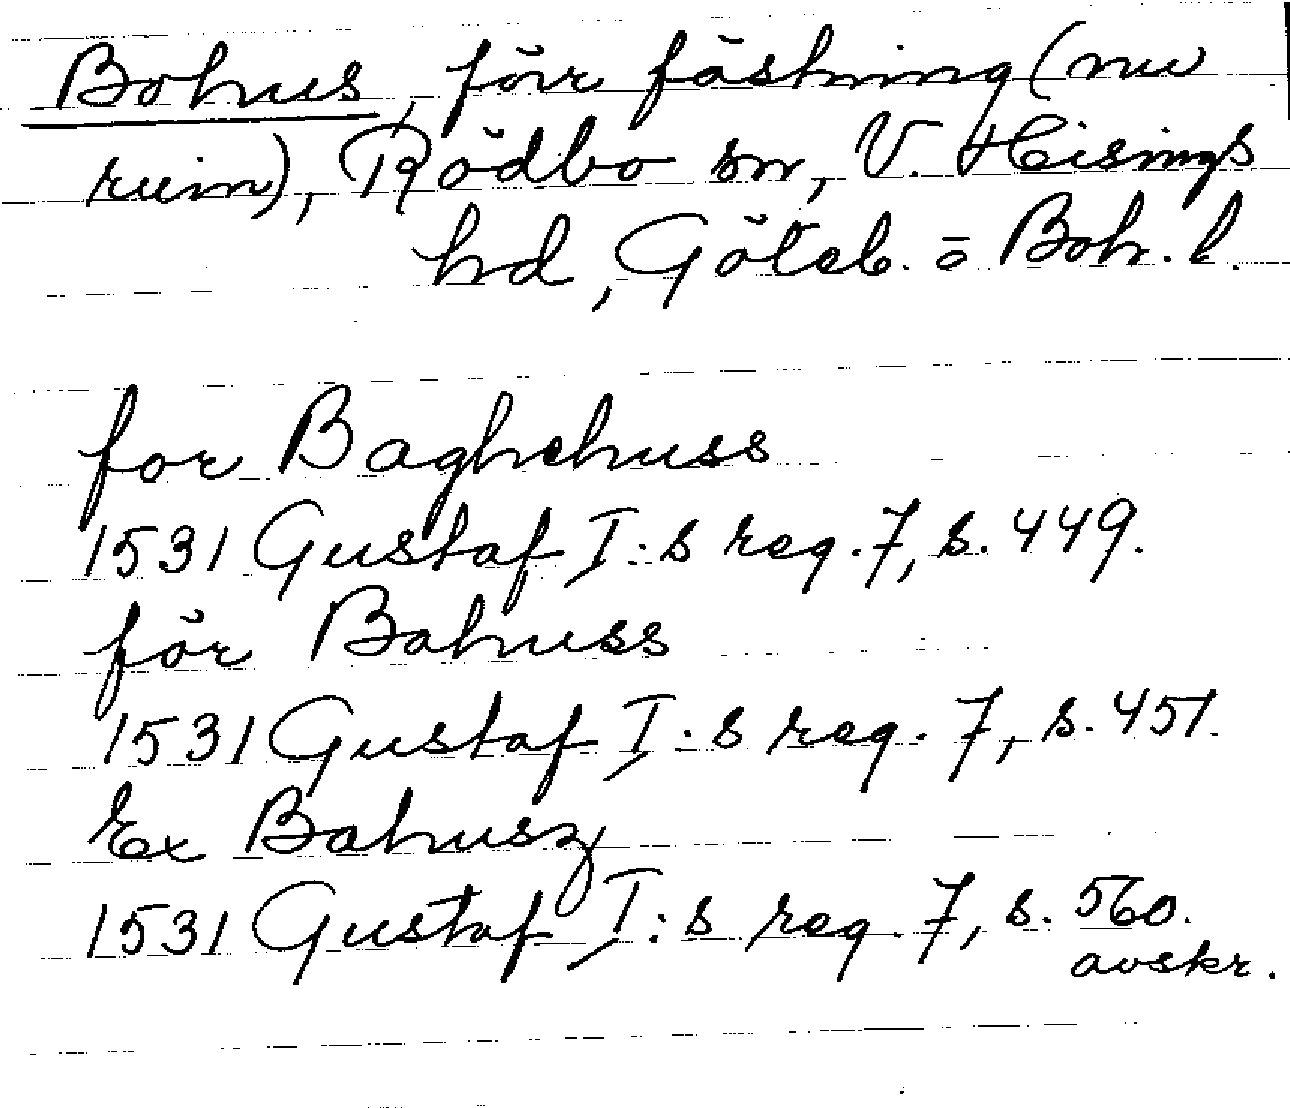 Bohus, förr fästning (nu
ruin), Rödbo sn, V. Hisings
hd, Göteb. o Boh. l.
for Baghehuss
1531 Gustaf I:s reg. 7, s. 449.
för Bahuss
1531 Gustaf I:s reg. 7, s. 451.
Ex Bahusz
1531 Gustaf I:s reg. 7, s. 560.
avskr.